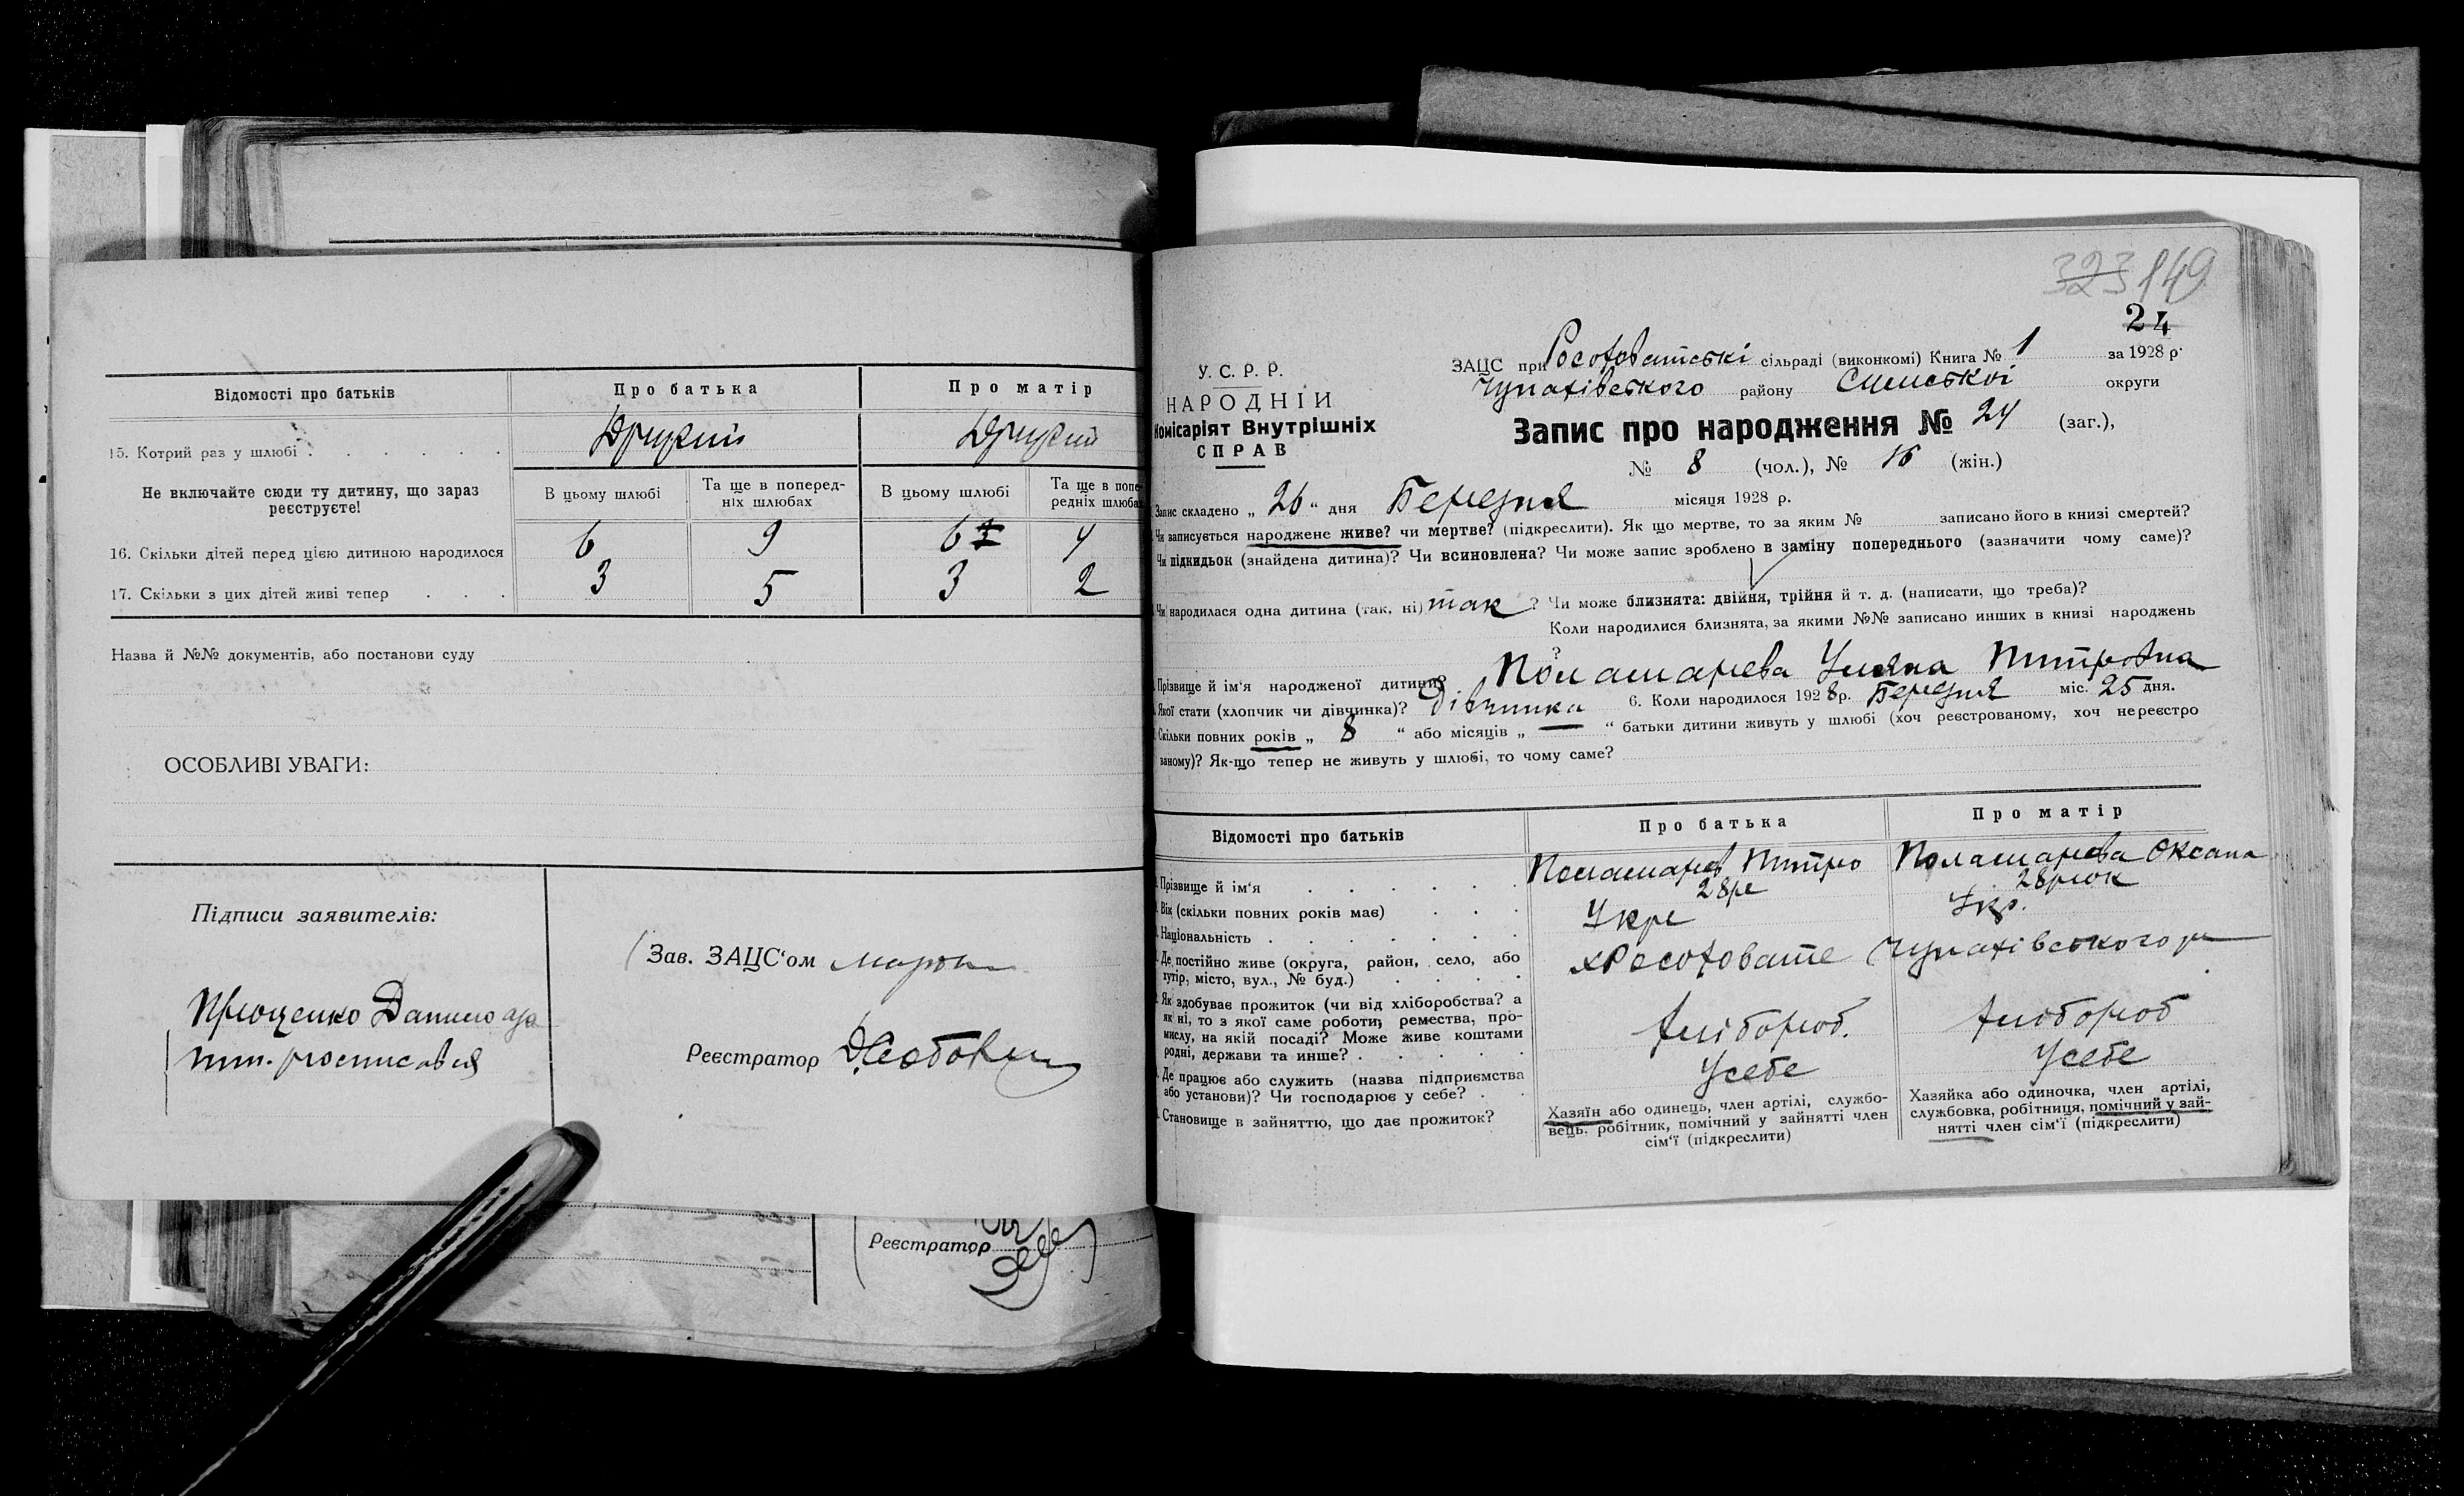 Відомості про батьків
Про батька
Про матір
15. Котрий раз у шлюбі
Другий
Другий
Не включайте сюди ту дитину, що зараз реєструєте!
В цьому шлюбі
Та ще в поперед-
ніх шлюбах
В цьому шлюбі
Та ще в попе-
редніх шлюбах
16. Скільки дітей перед цією дитиною народилося
6
9
6
4
17. Скільки з цих дітей живі тепер
3
5
3
2
Назва й №№ документів, або постанови суду
ОСОБЛИВІ УВАГИ:
Підписи заявителів:
Проценко Данило
росписався
Зав. ЗАЦС'ом
Реєстратор
Реєстратор
323 149
24
У. С. Р. Р.
НАРОДНІЙ
Комісаріят Внутрішніх
СПРАВ
ЗАЦС при Росохватські сільраді (виконкомі) Книга № 1 за 1928 р.
Чупахівського району Сумської округи
Запис про народження № 24 (заг.),
№ 8 (чол.), № 16 (жін.)
Запис складено „ 26 “ дня Березня місяця 1928 р.
Чи записується народжене живе? чи мертве? (підкреслити). Як що мертве, то за яким № записано його в книзі смертей?
Чи підкидьок (знайдена дитина)? Чи всиновлена? Чи може запис зроблено в заміну попереднього (зазначити чому саме)?
Чи народилася одна дитина (так, ні) так ? Чи може близнята: двійня, трійня й т. д. (написати, що треба)?
Коли народилися близнята, за якими №№ записано инших в книзі народжень
?
Прізвище й ім'я народженої дитини? Поламарева Уляна Митровна
Якої стати (хлопчик чи дівчинка)? дівчинка 6. Коли народилося 1928 р. Березня міс. 25 дня.
Скільки повних років „ 8 “ або місяців „ — “ батьки дитини живуть у шлюбі (хоч реєстрованому, хоч нереєстро
ваному)? Як-що тепер не живуть у шлюбі, то чому саме?
Відомості про батьків
Про батька
Про матір
Прізвище й ім'я
Поламарев Митро
Поламарева Оксана
Вік (скільки повних років має)
Національність
Укр.
Де постійно живе (округа, район, село, або
хутір, місто, вул., № буд.)
х Росохвате Чупахівського р
Як здобуває прожиток (чи від хліборобства? а
як ні, то з якої саме роботи, ремества, про-
мислу, на якій посаді? Може живе коштами
родні, держави та инше?
хлібороб.
хлібороб
Де працює або служить (назва підприємства
або установи)? Чи господарює у себе?
У себе
У себе
Становище в зайняттю, що дає прожиток?
Хазяїн або одинець, член артілі, службо-
вець, робітник, помічний у зайнятті член
сім'ї (підкреслити)
Хазяйка або одиночка, член артілі,
службовка, робітниця, помічний у зай-
нятті член сім'ї (підкреслити)